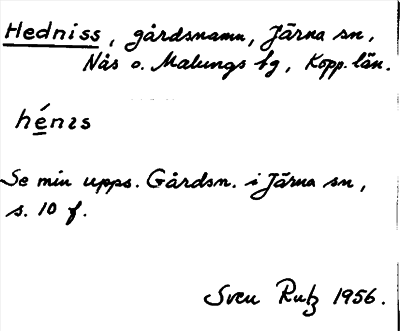 Hedniss, gårdsnamn, Järna sn,
Nås o. Malungs tg, Kopp. län.
hénıs
Se min upps. Gårdsn. i Järna sn,
s. 10 f.
Sven Rutz 1956.